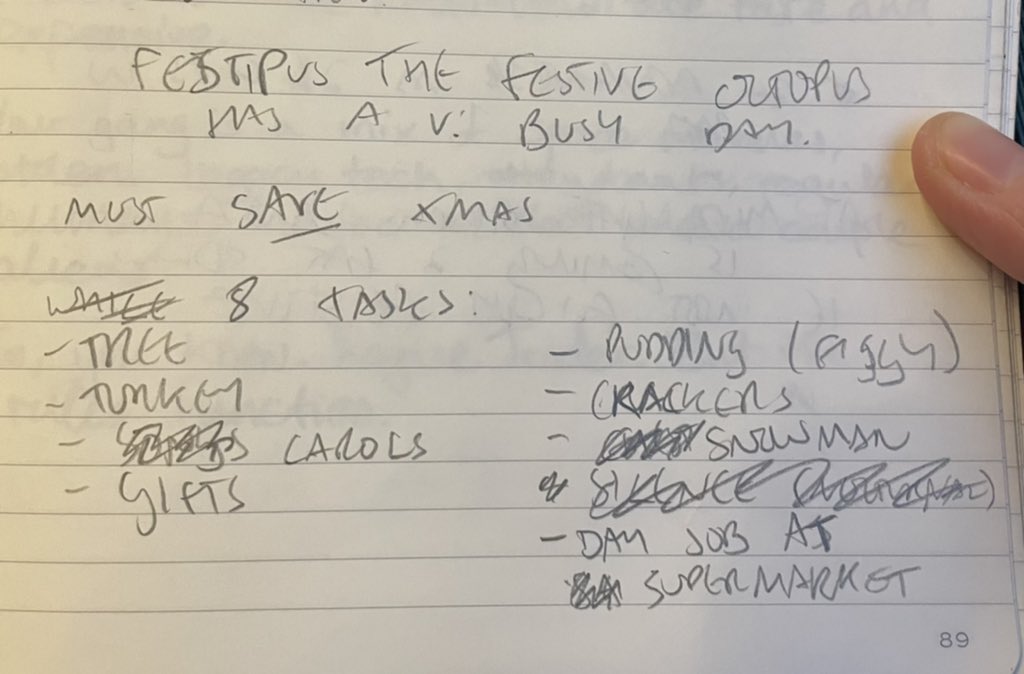 FESTIPUS THE FESTIVE OCTOPUS
HAS A V. BUSY DAY.
MUST SAVE XMAS
8 TASKS:
- TREE
- TURKEY
- CAROLS
- GIFTS
- PUDDING (FIGGY)
- CRACKERS
- SNOWMAN
- DAY JOB AT
SUPERMARKET
89